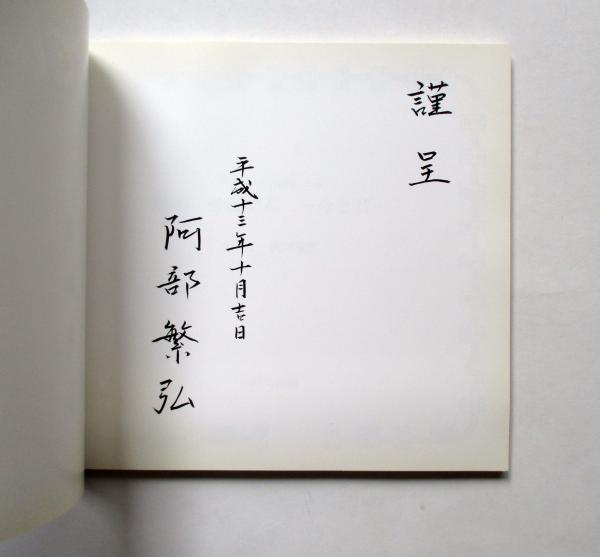 謹呈
平成十三年十月吉日
阿部繁弘